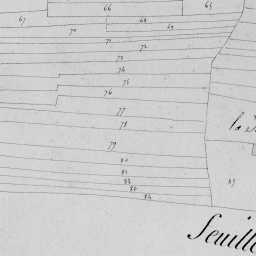 66
65
67
68
69
70
71
72
73
74
75
76
77
78
79
80
81
82
83
84
87
la
Seuill